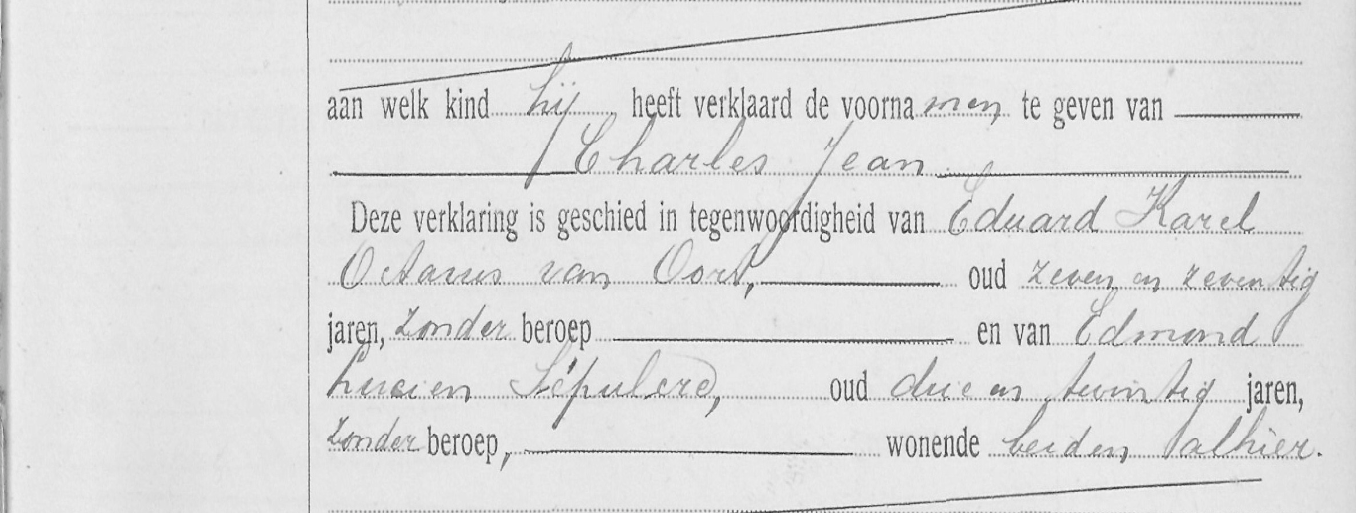 aan welk kind hij heeft verklaard de voornamen te geven van
Charles Jean
Deze verklaring is geschied in tegenwoordigheid van Eduard Karel
Octavus van Oort, oud zeven en zeventig
jaren, zonder beroep en van Edmond
Lucien Sépulcre, oud drie en twintig jaren,
zonder beroep, wonende beiden alhier.